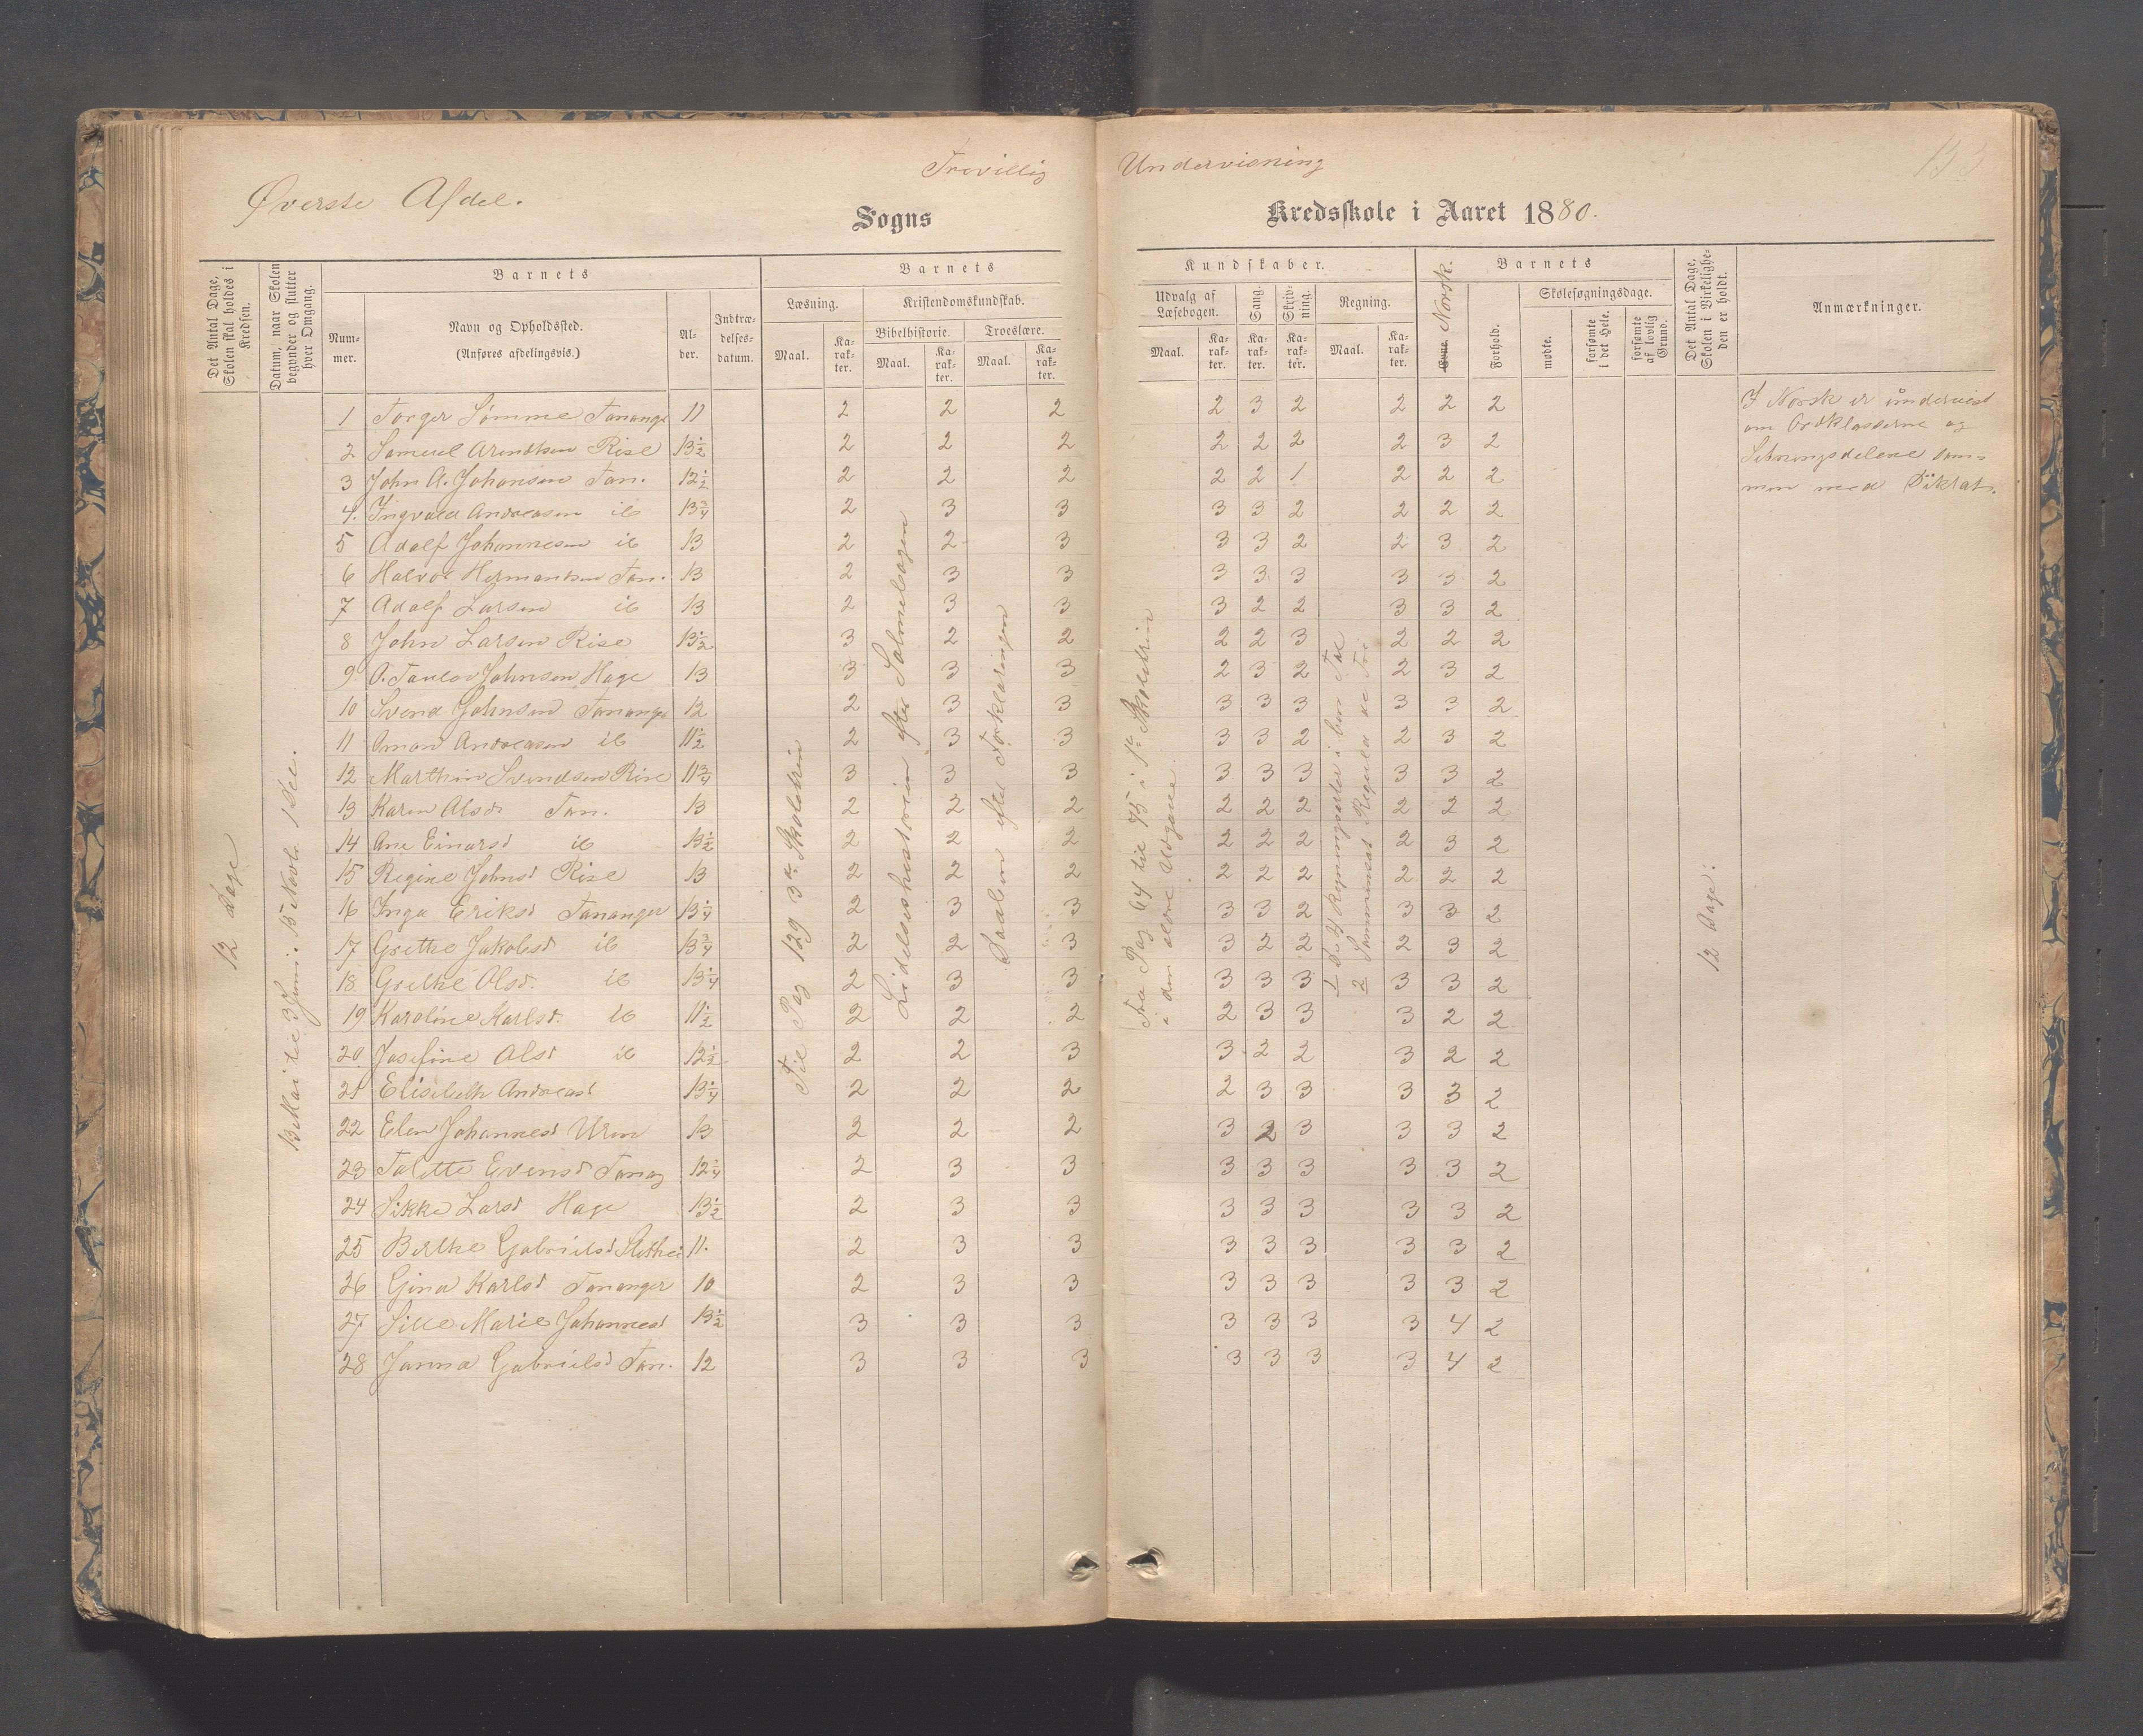 Frivillig Undervisning
133
Øverste Afdel.
Sogns Kredsskole i Aaret 1880.
Det Antal Dage, Skolen skal holdes i Kredsen.
Datum, naar Skolen begynder og slutter hver Omgang.
Barnets
Num-mer.
Navn og Opholdssted.
(Anføres afdelingsvis.)
Al-der.
Indtræ-delses-datum.
Barnets
Læsning.
Kristendomskundskab.
Bibelhistorie.
Troeslære.
Maal.
Ka-rak-ter.
Maal.
Ka-rak-ter.
Maal.
Ka-rak-ter.
Kundskaber.
Udvalg af Læsebogen.
Sang.
Skriv-ning.
Regning.
Maal.
Ka-rak-ter.
Ka-rak-ter.
Ka-rak-ter.
Maal.
Ka-rak-ter.
Evne. Norsk.
Barnets
Forhold.
Skolesøgningsdage.
mødte.
forsømte i det Hele.
forsømte af lovlig Grund.
Det Antal Dage, Skolen i Virkelighe-den er holdt.
Anmærkninger.
12 Dage
13 Mai til 3 Juni. 15 Novb. 1 Dec.
Til Pag 129 3die Skoletrin
Lidelseshistorien efter Salmebogen
efter Forklaringen
Fra Pag 64 til 75 i 1ste Skoletrin
i den ældre Udgave.
Regningsarter i ben. Tal
2 Sammensat Regula de Tri
12 Dage.
I Norsk er undervist
om Ordklasserne og
Sætningsdelene sam=
men med Diktat.
1 Torger Sømme Tananger 11 2 2 2 2 3 2 2 2 2
2 Samuel Arentsen Rise 13½ 2 2 2 2 2 2 2 3 2
3 John A. Johansen Tan. 12½ 2 2 2 2 2 1 2 2 2
4. Ingvald Andreasen ib 13¾ 2 3 3 3 3 2 2 2 2
5 Adolf Johannesen ib 13 2 2 3 3 3 2 2 3 2
6 Halvor Hermansen Tan. 13 2 3 3 3 3 3 3 3 2
7 Adolf Larsen ib 13 2 3 3 3 2 2 3 3 2
8 John Larsen Rise 13½ 3 2 2 2 2 3 2 2 2
9 O. Taulov Johnsen Hage 13 3 3 3 2 3 2 2 3 2
10 Svend Johnsen Tananger 12 2 3 3 3 3 3 3 3 2
11 Oman Andreasen ib 11½ 2 3 3 3 3 2 2 3 2
12 Marthin Svendsen Risе 11¾ 3 3 3 3 3 3 3 3 2
13 Karen Olsd Tan. 13 2 2 2 2 2 2 2 2 2
14 Ane Einarsd ib 13½ 2 2 2 2 2 2 2 3 2
15 Regine Johnsd Rise 13 2 2 2 2 2 2 2 2 2
16 Inga Eriksd Tananger 13¼ 2 3 3 3 3 2 3 3 2
17 Grethe Jakobsd ib 13¾ 2 2 3 3 2 2 2 3 2
18 Grethe Olsd. ib 13¼ 2 3 3 3 3 3 3 3 2
19 Karoline Karlsd. ib 11½ 2 2 2 2 3 3 3 2 2
20 Josefine Olsd ib 12½ 2 2 3 3 2 2 3 2 2
21 Elisabeth Andreasd 13¼ 2 2 2 2 3 3 3 3 2
22 Elen Johannesd Uren 13 2 2 2 3 2 3 3 3 2
23 Talette Evensd Tanag 12¼ 2 3 3 3 3 3 3 3 2
24 Sikke Larsd Hage 13½ 2 3 3 3 3 3 3 3 2
25 Berthe Gabrielsd 11. 2 3 3 3 3 3 3 3 2
26 Gina Karlsd Tananger 10 2 3 3 3 3 3 3 3 2
27 Sille Marie Johannesd 13½ 3 3 3 3 3 3 3 4 2
28 Janna Gabrielsd Tan. 12 3 3 3 3 3 3 3 4 2